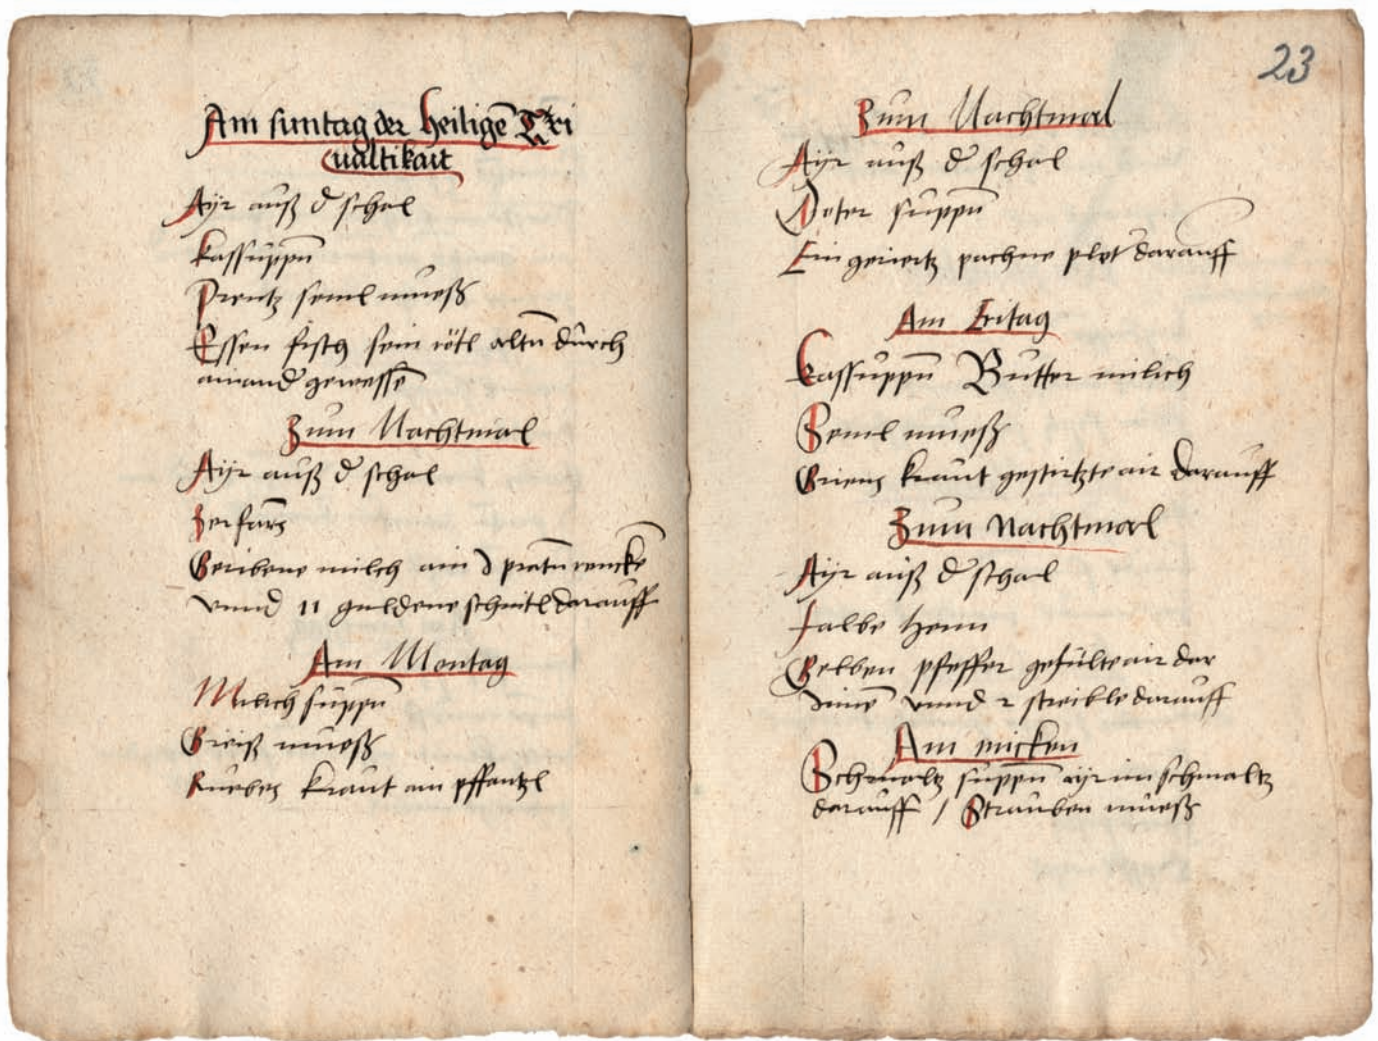 Am suntag der heiligē Tri
ualtikait
Ayr auß d schal
kassuppn̄
Prentz seml mueß
Essen fisch sein rötl altn̄ durch
ainand gewessē
Zum Nachtmal
Ayr auß d schal
Geribene milch ain pratn̄ renckē
vnnd 11 guldene schnitl darauff
Am Montag
Milich suppn̄
Greiß mueß
Rueben kraut ain pffantzl
23
Zum Nachtmal
Ayr auß d schal
Doter suppn̄
Ein geriertz pachne plet darauff
Am Eritag
kassuppn̄ Butter milich
Seml mueß
Griens kraut gestirtzte air darauff
Zum Nachtmal
Ayr auß d schal
Jalbe henn
Gelben pfeffer gefülte air der
vnnd 2 streible darauff
Am micken
Schmaltz suppn̄ ayr im schmaltz
darauff / Strauben mueß